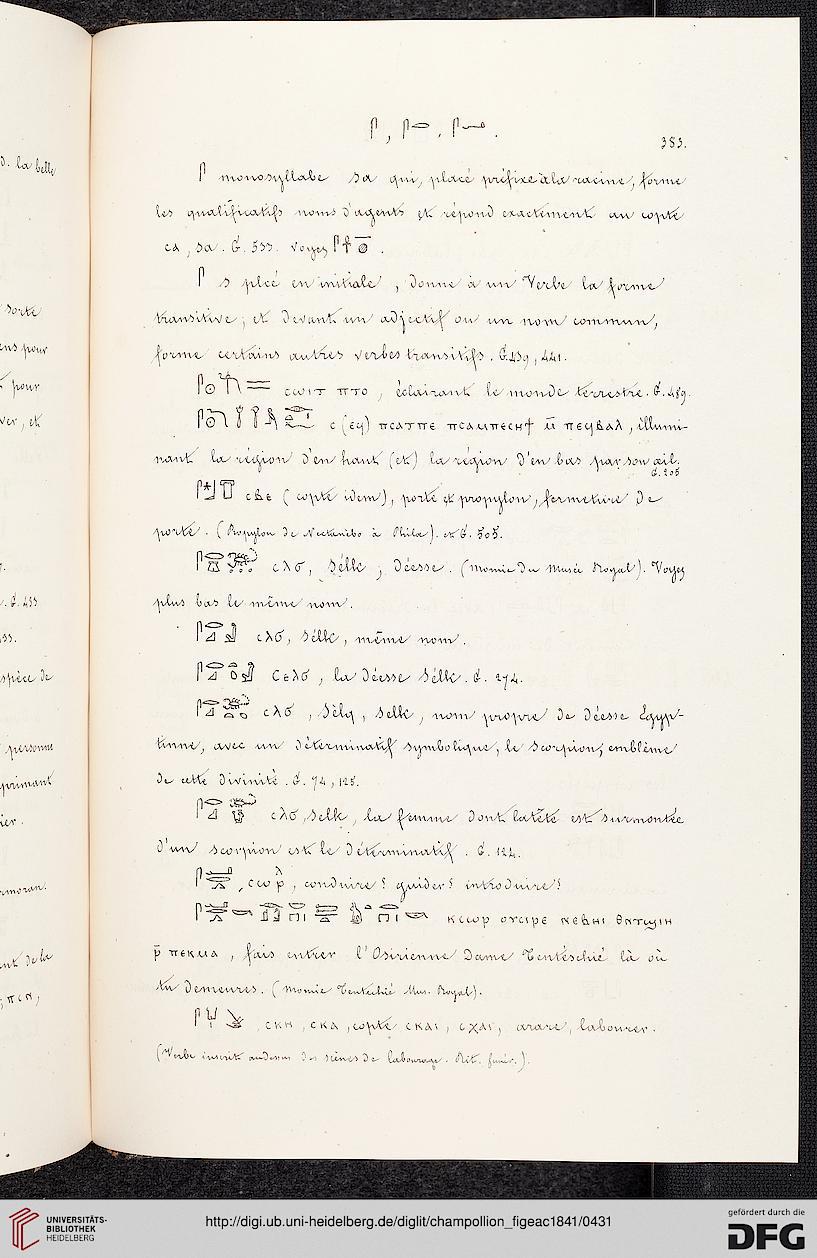 383.
monosyllabe sa qui, placé préfixe à la racine, forme
les qualificatifs noms d'agents et répond exactement au copte
ⲥⲁ, sa. G. 533. Voyez
s plcé en initiale, donne à un Verbe la forme
transitive; et devant un adjectif ou un nom commun,
forme certains autres verbes transitifs. G. 439, 441.
ⲥⲱⲓⲧ ⲡⲧⲟ, éclairant le monde terrestre. G. 489.
ⲥ (ⲉϥ) ⲡⲥⲁⲧⲡⲉ ⲡⲥⲁⲙⲡⲉⲥⲏϯ ⲙ̄ ⲡⲉϥⲃⲁⲗ, illumi-
nant la région d'en haut (et) la région d'en bas par son œil.
G. 205
ⲥⲃⲉ (copte idem), porte et propylon, fermeture de
porte. (Propylon de Nectanèbo à Philæ). et G. 505.
ⲥⲗϭ, Sélk, Déesse. (Momie du Musée Royal). Voyez
plus bas le même nom.
ⲥⲗϭ, Sélk, même nom.
ⲥⲉⲗϭ, la Déesse Sélk. G. 274.
ⲥⲗϭ, Sèlq, Selk, nom propre de Déesse Égyp-
tienne, avec un déterminatif symbolique, le Scorpion, emblème
de cette divinité. G. 74, 125.
ⲥⲗϭ, Selk, la femme dont la tête est surmontée
d'un scorpion est le déterminatif. G. 124.
ⲥⲱⲣ, conduire? guider? introduire?
ⲕⲥⲱⲣ ⲟⲩⲥⲓⲣⲉ ⲛⲉⲃⲏⲓ ⲑⲛⲧϣⲓⲏ
ⲣ̄ ⲡⲉⲕⲙⲁ, fais entrer l'Osirienne Dame Tentéschié là où
tu demeures. (Momie Mus. Royal).
ⲥⲕⲏ, ⲥⲕⲁ, copte ⲥⲕⲁⲓ, ⲥⲭⲁⲓ, arare, labourer.
(Verbe inscrit audessus des scènes de labourage. Rit. funér.).
D. la belle
sorte
ens pour
pour
ver, et
G. 433
espèce de
personne
primant
ier.
ⲡⲥⲛ,
UNIVERSITÄTS-
BIBLIOTHEK
HEIDELBERG
http://digi.ub.uni-heidelberg.de/diglit/champollion_figeac1841/0431
gefördert durch die
DFG